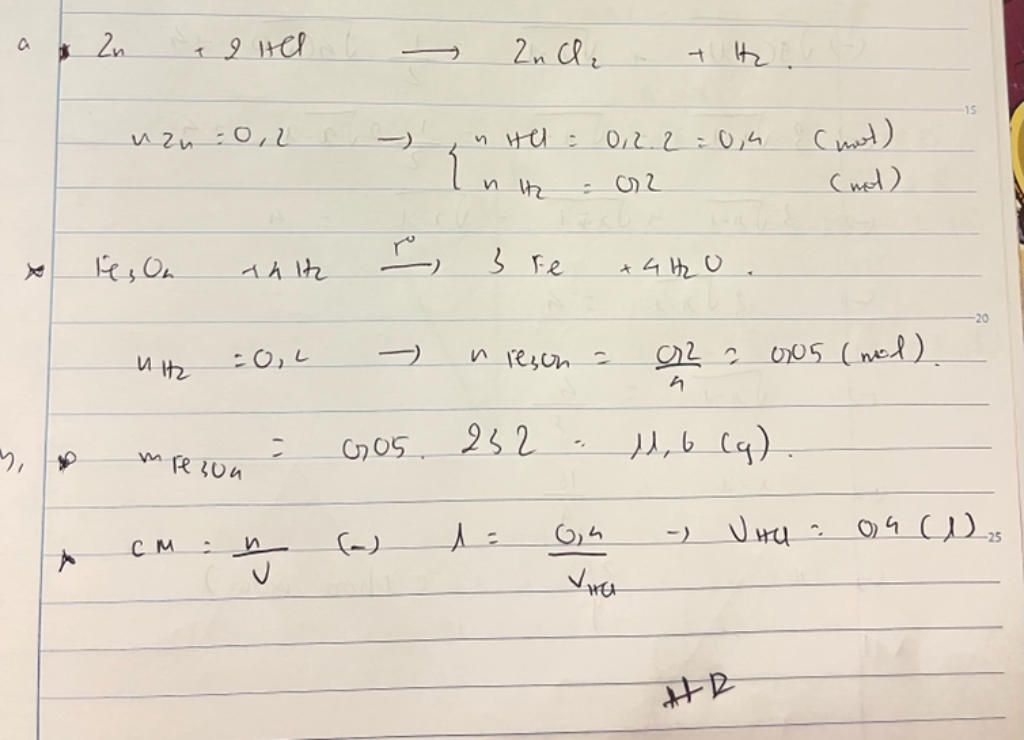 a * Zn + 2 HCl ⟶ ZnCl₂ + H₂.
15
n Zn = 0,2 → { n HCl = 0,2.2 = 0,4 (mol)
n H₂ = 0,2 (mol)
* Fe₃O₄ + 4 H₂ t° ⟶ 3 Fe + 4 H₂O.
20
n H₂ = 0,2 → n Fe₃O₄ = 0,2/4 = 0,05 (mol).
b, * m Fe₃O₄ = 0,05. 232 = 11,6 (g).
* CM = n/V (-) 1 = 0,4/V HCl → V HCl = 0,4 (l)
25